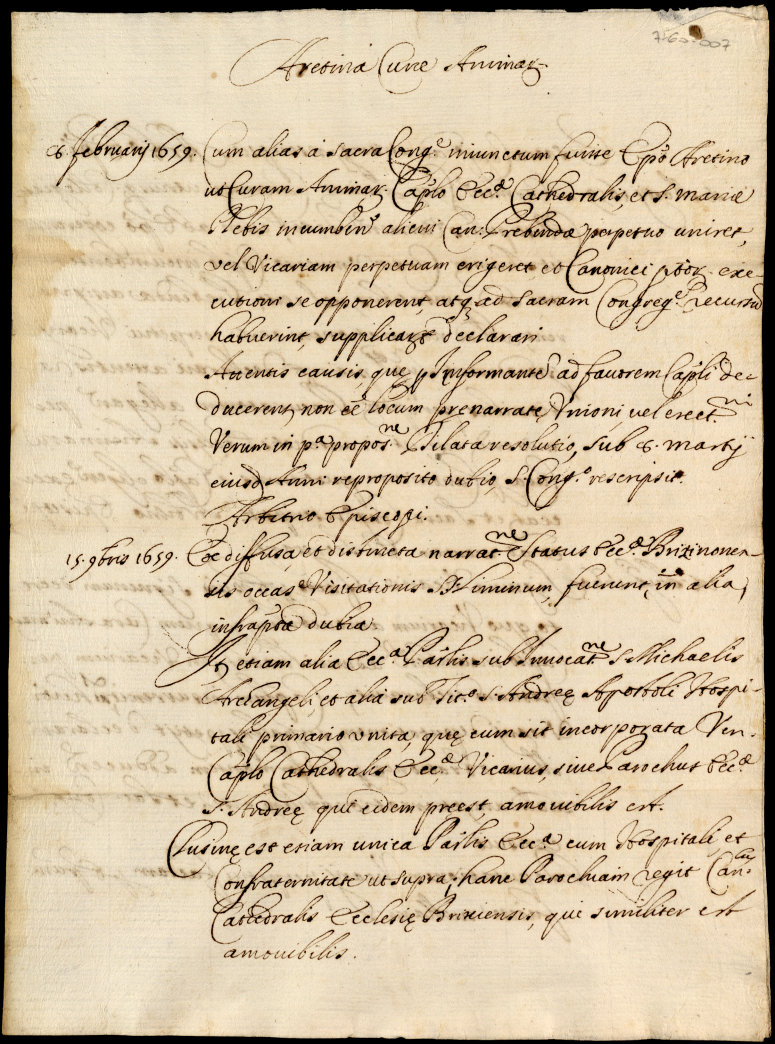 7-60-007
Aretina Curæ Animar.
8. Februarij 1659. Cum alias à Sacra Congᵉ iniunctum fuisse Epo Aretino
ut Curam Animar. Caplo Eccᵉ Cathedralis, et S. Mariæ
Plebis incumbenᵗ alicui Can. Prebendæ perpetuo uniret,
vel Vicariam perpetuam erigeret et Canonici pᵗᵒʳ exe-
cutioni se opponerent, atq. ad Sacram Congregᵉ recursū
habuerint, supplicarᵗ declarari
Attentis causis, quę p Informantē ad favorem Capli de-
ducerent, non eē locum prenarratę Unioni, vel erectⁿⁱ
Verum in pᵃ proposⁿᵉ Dilata resolutio, sub 8. martij
eiusd Anni reproposito dubio, S. Congᵒ rescripsit.
Arbitrio Episcopi.
15. 9bris 1659. Ex diffusa, et distincta narratⁿᵉ Status Eccᵉ Brixinonen-
sis occasᵉ Visitationis SS. Liminum, fuerunt, in alia,
infraptā dubia
It etiam alia Eccᵃ Parlis sub Invocatⁿᵉ S. Michaelis
Archangeli, et alia sub Titᵒ S. Andreę Apostoli Hospi-
tali primario unita, quę cum sit incorporata Ven.
Caplo Cathedralis Eccᵉ, Vicarius, sive Parochus Eccᵉ
S. Andreę qui eidem preest, amovibilis est.
Clusinę est etiam unica Parlis Eccᵃ cum Hospitali, et
Confraternitate ut supra, hanc Parochiam regit Can.
Cathedralis Ecclesię Brixiensis, qui similiter est
amovibilis.